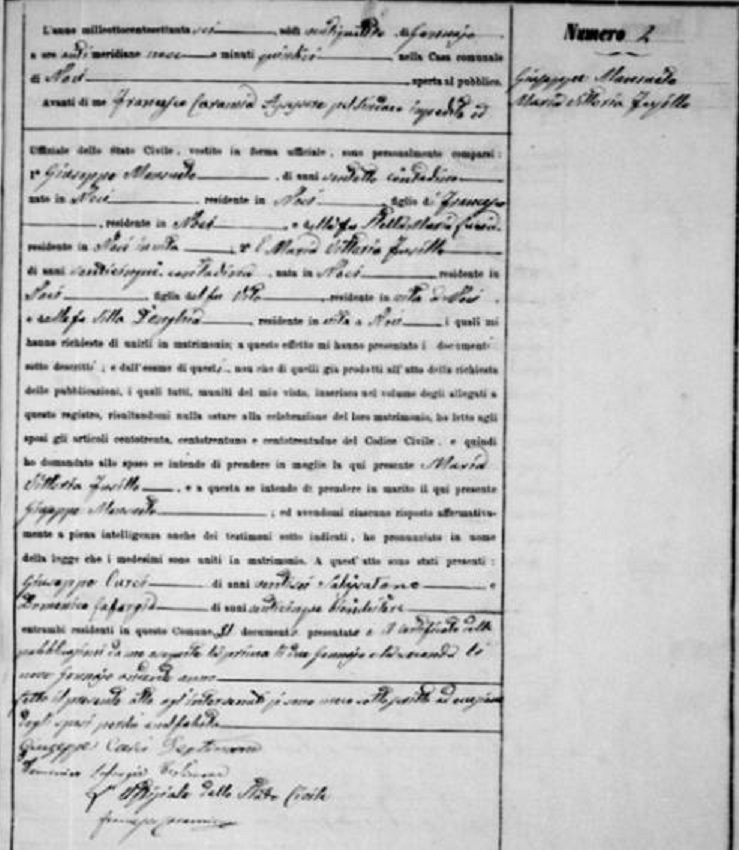 L'anno milleottocentosettanta sei, addì ventiquattro di Gennajo
a ore anti meridiane nove e minuti quindici, nella Casa comunale
di Noci aperta al pubblico.
Avanti di me Francesco Assessore pel Sindaco impedito ed
Uffiziale dello Stato Civile, vestito in forma ufficiale, sono personalmente comparsi:
1° Giuseppe, di anni contadino
nato in Noci, residente in Noci, figlio di Francesco
, residente in Noci, e della fu Maria
residente in Noci in vita; 2° Maria Vittoria Fusillo
di anni venticinque contadina, nata in Noci, residente in
Noci, figlia del fu Vito, residente in vita a Noci
e della fu, residente in vita a Noci, i quali mi
hanno richiesto di unirli in matrimonio; a questo effetto mi hanno presentato i documenti
sotto descritti; e dall'esame di questi, non che di quelli già prodotti all'atto della richiesta
delle pubblicazioni, i quali tutti, muniti del mio visto, inserisco nel volume degli allegati a
questo registro, risultandomi nulla ostare alla celebrazione del loro matrimonio, ho letto agli
sposi gli articoli centotrenta, centotrentuno e centotrentadue del Codice Civile, e quindi
ho domandato allo sposo se intende di prendere in moglie la qui presente Maria
Vittoria Fusillo, e a questa se intende di prendere in marito il qui presente
Giuseppe; ed avendomi ciascuno risposto affermativa-
mente a piena intelligenza anche dei testimoni sotto indicati, ho pronunziato in nome
della legge che i medesimi sono uniti in matrimonio. A quest'atto sono stati presenti:
Giuseppe di anni ventisei e
Domenico di anni venticinque
entrambi residenti in questo Comune. Il documento presentato è il certificato delle
pubblicazioni da me eseguite la prima li due Gennajo e la seconda li
nove Gennajo andante anno
Letto il presente atto agli intervenuti si sono meco sottoscritti ad eccezione
degli sposi perchè analfabeti
Giuseppe testimone
Domenico testimone
L'Uffiziale dello Stato Civile
Francesco
Numero 2
Giuseppe
Maria Vittoria Fusillo